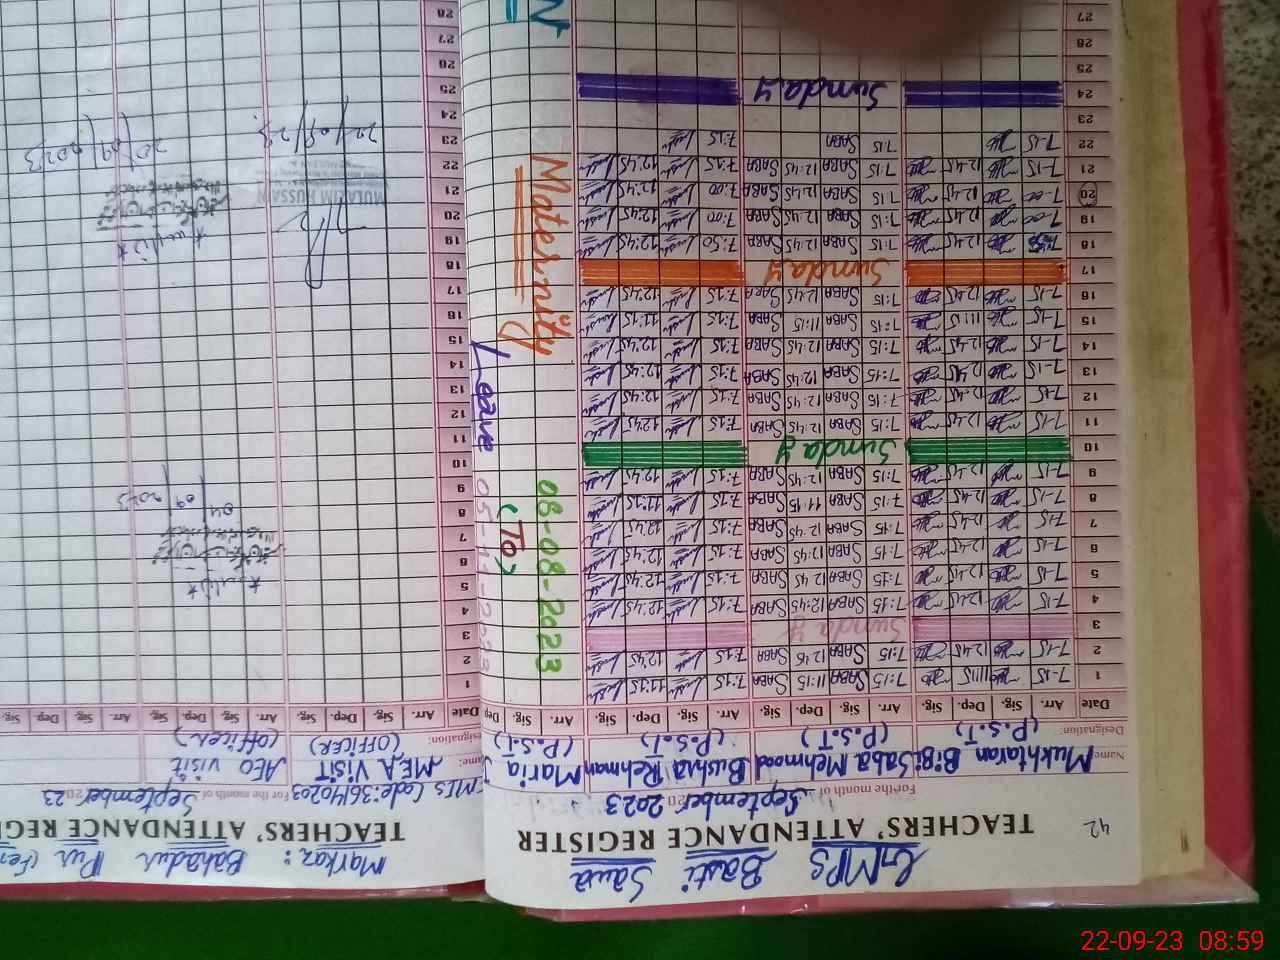 42
GMPS Basti Sawa
TEACHERS' ATTENDANCE REGISTER
For the month of September 2023
Name: Mukhtaran BiBi Saba Mehmood Bushra Rehman Maria
Designation: (P.S.T) (P.S.T) (P.S.T) (P.S.T)
Date Arr. Sig. Dep. Sig. Arr. Sig. Dep. Sig. Arr. Sig. Dep. Sig. Arr. Sig. Dep
1 7-15 11:15 7:15 SABA 11:15 SABA 7:15 11:15
2 7-15 12:45 7:15 SABA 12:45 SABA 7:15 12:45
3 Sunday
4 7-15 12:45 7:15 SABA 12:45 SABA 7:15 12:45
5 7-15 12:45 7:15 SABA 12:45 SABA 7:15 12:45
6 7-15 12:45 7:15 SABA 12:45 SABA 7:15 12:45
7 7-15 12:45 7:15 SABA 12:45 SABA 7:15 12:45
8 7-15 11:15 7:15 SABA 11:15 SABA 7:15 11:15
9 7-15 12:45 7:15 SABA 12:45 SABA 7:15 12:45
10 Sunday
11 7-15 12:45 7:15 SABA 12:45 SABA 7:15 12:45
12 7-15 12:45 7:15 SABA 12:45 SABA 7:15 12:45
13 7-15 12:45 7:15 SABA 12:45 SABA 7:15 12:45
14 7-15 12:45 7:15 SABA 12:45 SABA 7:15 12:45
15 7-15 11:15 7:15 SABA 11:15 SABA 7:15 11:15
16 7-15 12:45 7:15 SABA 12:45 SABA 7:15 12:45
17 Sunday
18 12:45 7:15 SABA 12:45 SABA 7:50 12:45
19 7-00 12:45 7:15 SABA 12:45 SABA 7:00 12:45
20 7-00 12:45 7:15 SABA 12:45 SABA 7:00 12:45
21 7-15 12:45 7:15 SABA 12:45 SABA 7:15 12:45
22 7-15 7:15 SABA 7:15
23
24 Sunday
25
26
27
Maternity Leave
08-08-2023
(To)
05-11-2023
Markaz: Bahadur Pur (Fem
TEACHERS' ATTENDANCE REG
EMIS Code: 36140203 For the month of September 23
ame: MEA VISIT AEO visit
esignation: (OFFICER) (officer)
Date Arr. Sig. Dep. Sig. Arr. Sig. Dep. Sig. Arr. Sig. Dep. Sig.
1
2
3
4
5
6
7
8
9
10
11
12
13
14
15
16
17
18
19
20
21
22
23
24
25
26
27
28
04 09 2023
MULAZIM HUSSAIN
20/09/2023
22-09-23 08:59